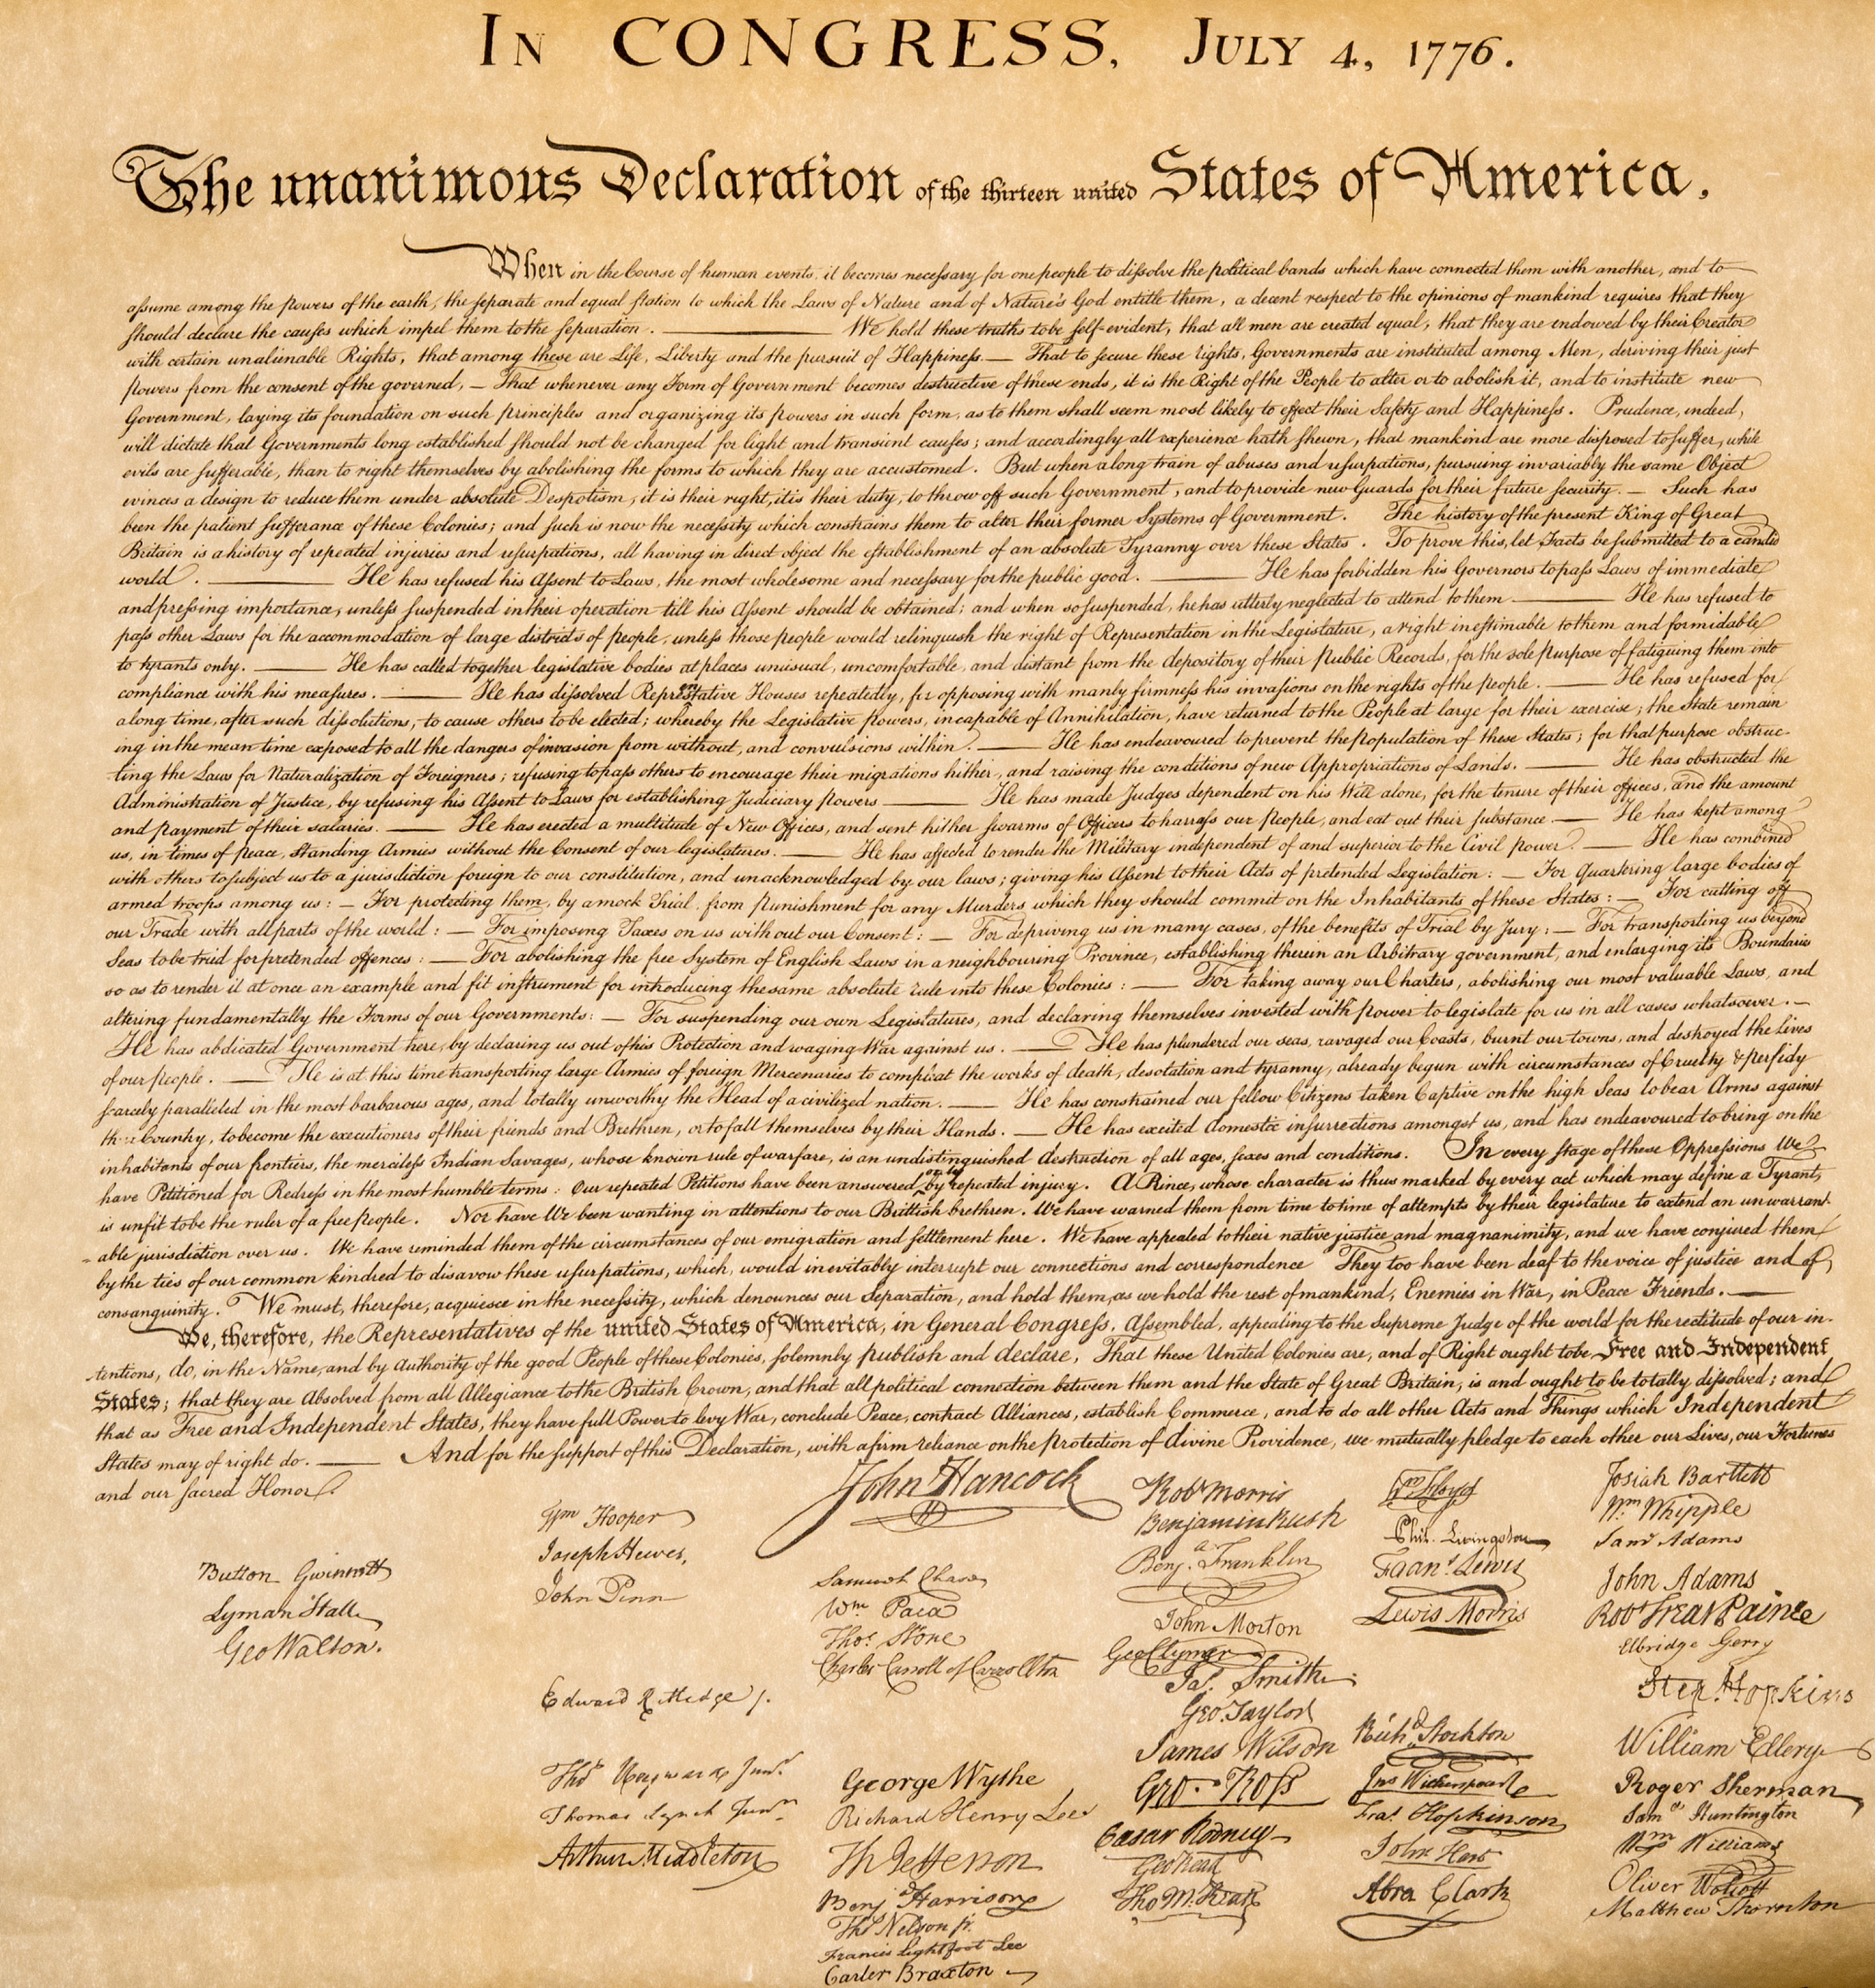 In CONGRESS, July 4, 1776.
The unanimous Declaration of the thirteen united States of America,
When in the Course of human events, it becomes necessary for one people to dissolve the political bands which have connected them with another, and to
assume among the powers of the earth, the separate and equal station to which the Laws of Nature and of Nature's God entitle them, a decent respect to the opinions of mankind requires that they
should declare the causes which impel them to the separation. — We hold these truths to be self-evident, that all men are created equal, that they are endowed by their Creator
with certain unalienable Rights, that among these are Life, Liberty and the pursuit of Happiness. — That to secure these rights, Governments are instituted among Men, deriving their just
powers from the consent of the governed, — That whenever any Form of Government becomes destructive of these ends, it is the Right of the People to alter or to abolish it, and to institute new
Government, laying its foundation on such principles and organizing its powers in such form, as to them shall seem most likely to effect their Safety and Happiness. Prudence, indeed,
will dictate that Governments long established should not be changed for light and transient causes; and accordingly all experience hath shewn, that mankind are more disposed to suffer, while
evils are sufferable, than to right themselves by abolishing the forms to which they are accustomed. But when a long train of abuses and usurpations, pursuing invariably the same Object
evinces a design to reduce them under absolute Despotism, it is their right, it is their duty, to throw off such Government, and to provide new Guards for their future security. — Such has
been the patient sufferance of these Colonies; and such is now the necessity which constrains them to alter their former Systems of Government. The history of the present King of Great
Britain is a history of repeated injuries and usurpations, all having in direct object the establishment of an absolute Tyranny over these States. To prove this, let Facts be submitted to a candid
world. — He has refused his Assent to Laws, the most wholesome and necessary for the public good. — He has forbidden his Governors to pass Laws of immediate
and pressing importance, unless suspended in their operation till his Assent should be obtained; and when so suspended, he has utterly neglected to attend to them — He has refused to
pass other Laws for the accommodation of large districts of people, unless those people would relinquish the right of Representation in the Legislature, a right inestimable to them and formidable
to tyrants only. — He has called together legislative bodies at places unusual, uncomfortable, and distant from the depository of their Public Records, for the sole purpose of fatiguing them into
compliance with his measures. — He has dissolved Representative Houses repeatedly, for opposing with manly firmness his invasions on the rights of the people. — He has refused for
a long time, after such dissolutions, to cause others to be elected; whereby the Legislative powers, incapable of Annihilation, have returned to the People at large for their exercise; the State remain
ing in the mean time exposed to all the dangers of invasion from without, and convulsions within. — He has endeavoured to prevent the population of these States; for that purpose obstruc-
ting the Laws for Naturalization of Foreigners; refusing to pass others to encourage their migrations hither, and raising the conditions of new Appropriations of Lands. — He has obstructed the
Administration of Justice, by refusing his Assent to Laws for establishing Judiciary powers — He has made Judges dependent on his Will alone, for the tenure of their offices, and the amount
and payment of their salaries. — He has erected a multitude of New Offices, and sent hither swarms of Officers to harrass our people, and eat out their substance. — He has kept among
us, in times of peace, Standing Armies without the Consent of our legislatures. — He has affected to render the Military independent of and superior to the Civil power. — He has combined
with others to subject us to a jurisdiction foreign to our constitution, and unacknowledged by our laws; giving his Assent to their Acts of pretended Legislation: — For Quartering large bodies of
armed troops among us: — For protecting them, by a mock Trial, from punishment for any Murders which they should commit on the Inhabitants of these States: — For cutting off
our Trade with all parts of the world: — For imposing Taxes on us without our Consent: — For depriving us in many cases, of the benefits of Trial by Jury: — For transporting us beyond
Seas to be tried for pretended offences: — For abolishing the free System of English Laws in a neighbouring Province, establishing therein an Arbitrary government, and enlarging its Boundaries
so as to render it at once an example and fit instrument for introducing the same absolute rule into these Colonies: — For taking away our Charters, abolishing our most valuable Laws, and
altering fundamentally the Forms of our Governments: — For suspending our own Legislatures, and declaring themselves invested with power to legislate for us in all cases whatsoever. —
He has abdicated Government here, by declaring us out of his Protection and waging War against us. — He has plundered our seas, ravaged our Coasts, burnt our towns, and destroyed the lives
of our people. — He is at this time transporting large Armies of foreign Mercenaries to compleat the works of death, desolation and tyranny, already begun with circumstances of Cruelty & perfidy
scarcely paralleled in the most barbarous ages, and totally unworthy the Head of a civilized nation. — He has constrained our fellow Citizens taken Captive on the high Seas to bear Arms against
their Country, to become the executioners of their friends and Brethren, or to fall themselves by their Hands. — He has excited domestic insurrections amongst us, and has endeavoured to bring on the
inhabitants of our frontiers, the merciless Indian Savages, whose known rule of warfare, is an undistinguished destruction of all ages, sexes and conditions. In every stage of these Oppressions We
have Petitioned for Redress in the most humble terms: Our repeated Petitions have been answered only by repeated injury. A Prince, whose character is thus marked by every act which may define a Tyrant,
is unfit to be the ruler of a free people. Nor have We been wanting in attentions to our Brittish brethren. We have warned them from time to time of attempts by their legislature to extend an unwarrant-
able jurisdiction over us. We have reminded them of the circumstances of our emigration and settlement here. We have appealed to their native justice and magnanimity, and we have conjured them
by the ties of our common kindred to disavow these usurpations, which, would inevitably interrupt our connections and correspondence They too have been deaf to the voice of justice and of
consanguinity. We must, therefore, acquiesce in the necessity, which denounces our Separation, and hold them, as we hold the rest of mankind, Enemies in War, in Peace Friends. —
We, therefore, the Representatives of the united States of America, in General Congress, Assembled, appealing to the Supreme Judge of the world for the rectitude of our in-
tentions, do, in the Name, and by Authority of the good People of these Colonies, solemnly publish and declare, That these United Colonies are, and of Right ought to be Free and Independent
States; that they are Absolved from all Allegiance to the British Crown, and that all political connection between them and the State of Great Britain, is and ought to be totally dissolved; and
that as Free and Independent States, they have full Power to levy War, conclude Peace, contract Alliances, establish Commerce, and to do all other Acts and Things which Independent
States may of right do. — And for the support of this Declaration, with a firm reliance on the protection of divine Providence, we mutually pledge to each other our Lives, our Fortunes
and our sacred Honor.
Button Gwinnett
Lyman Hall
Geo Walton.
Wm Hooper
Joseph Hewes,
John Penn
Edward Rutledge /.
Thos Heyward Junr.
Thomas Lynch Junr.
Arthur Middleton
John Hancock
Samuel Chase
Wm Paca
Thos. Stone
Charles Carroll of Carrollton
George Wythe
Richard Henry Lee
Th Jefferson
Benja Harrison
Thos Nelson jr.
Francis Lightfoot Lee
Carter Braxton
Robt Morris
Benjamin Rush
Benja. Franklin
John Morton
Geo Clymer
Jas. Smith
Geo. Taylor
James Wilson
Geo. Ross
Caesar Rodney
Geo Read
Tho M:Kean
Wm Floyd
Phil. Livingston
Frans. Lewis
Lewis Morris
Richd. Stockton
Jno Witherspoon
Fras. Hopkinson
John Hart
Abra Clark
Josiah Bartlett
Wm. Whipple
Saml Adams
John Adams
Robt Treat Paine
Elbridge Gerry
Step. Hopkins
William Ellery
Roger Sherman
Saml Huntington
Wm Williams
Oliver Wolcott
Matthew Thornton